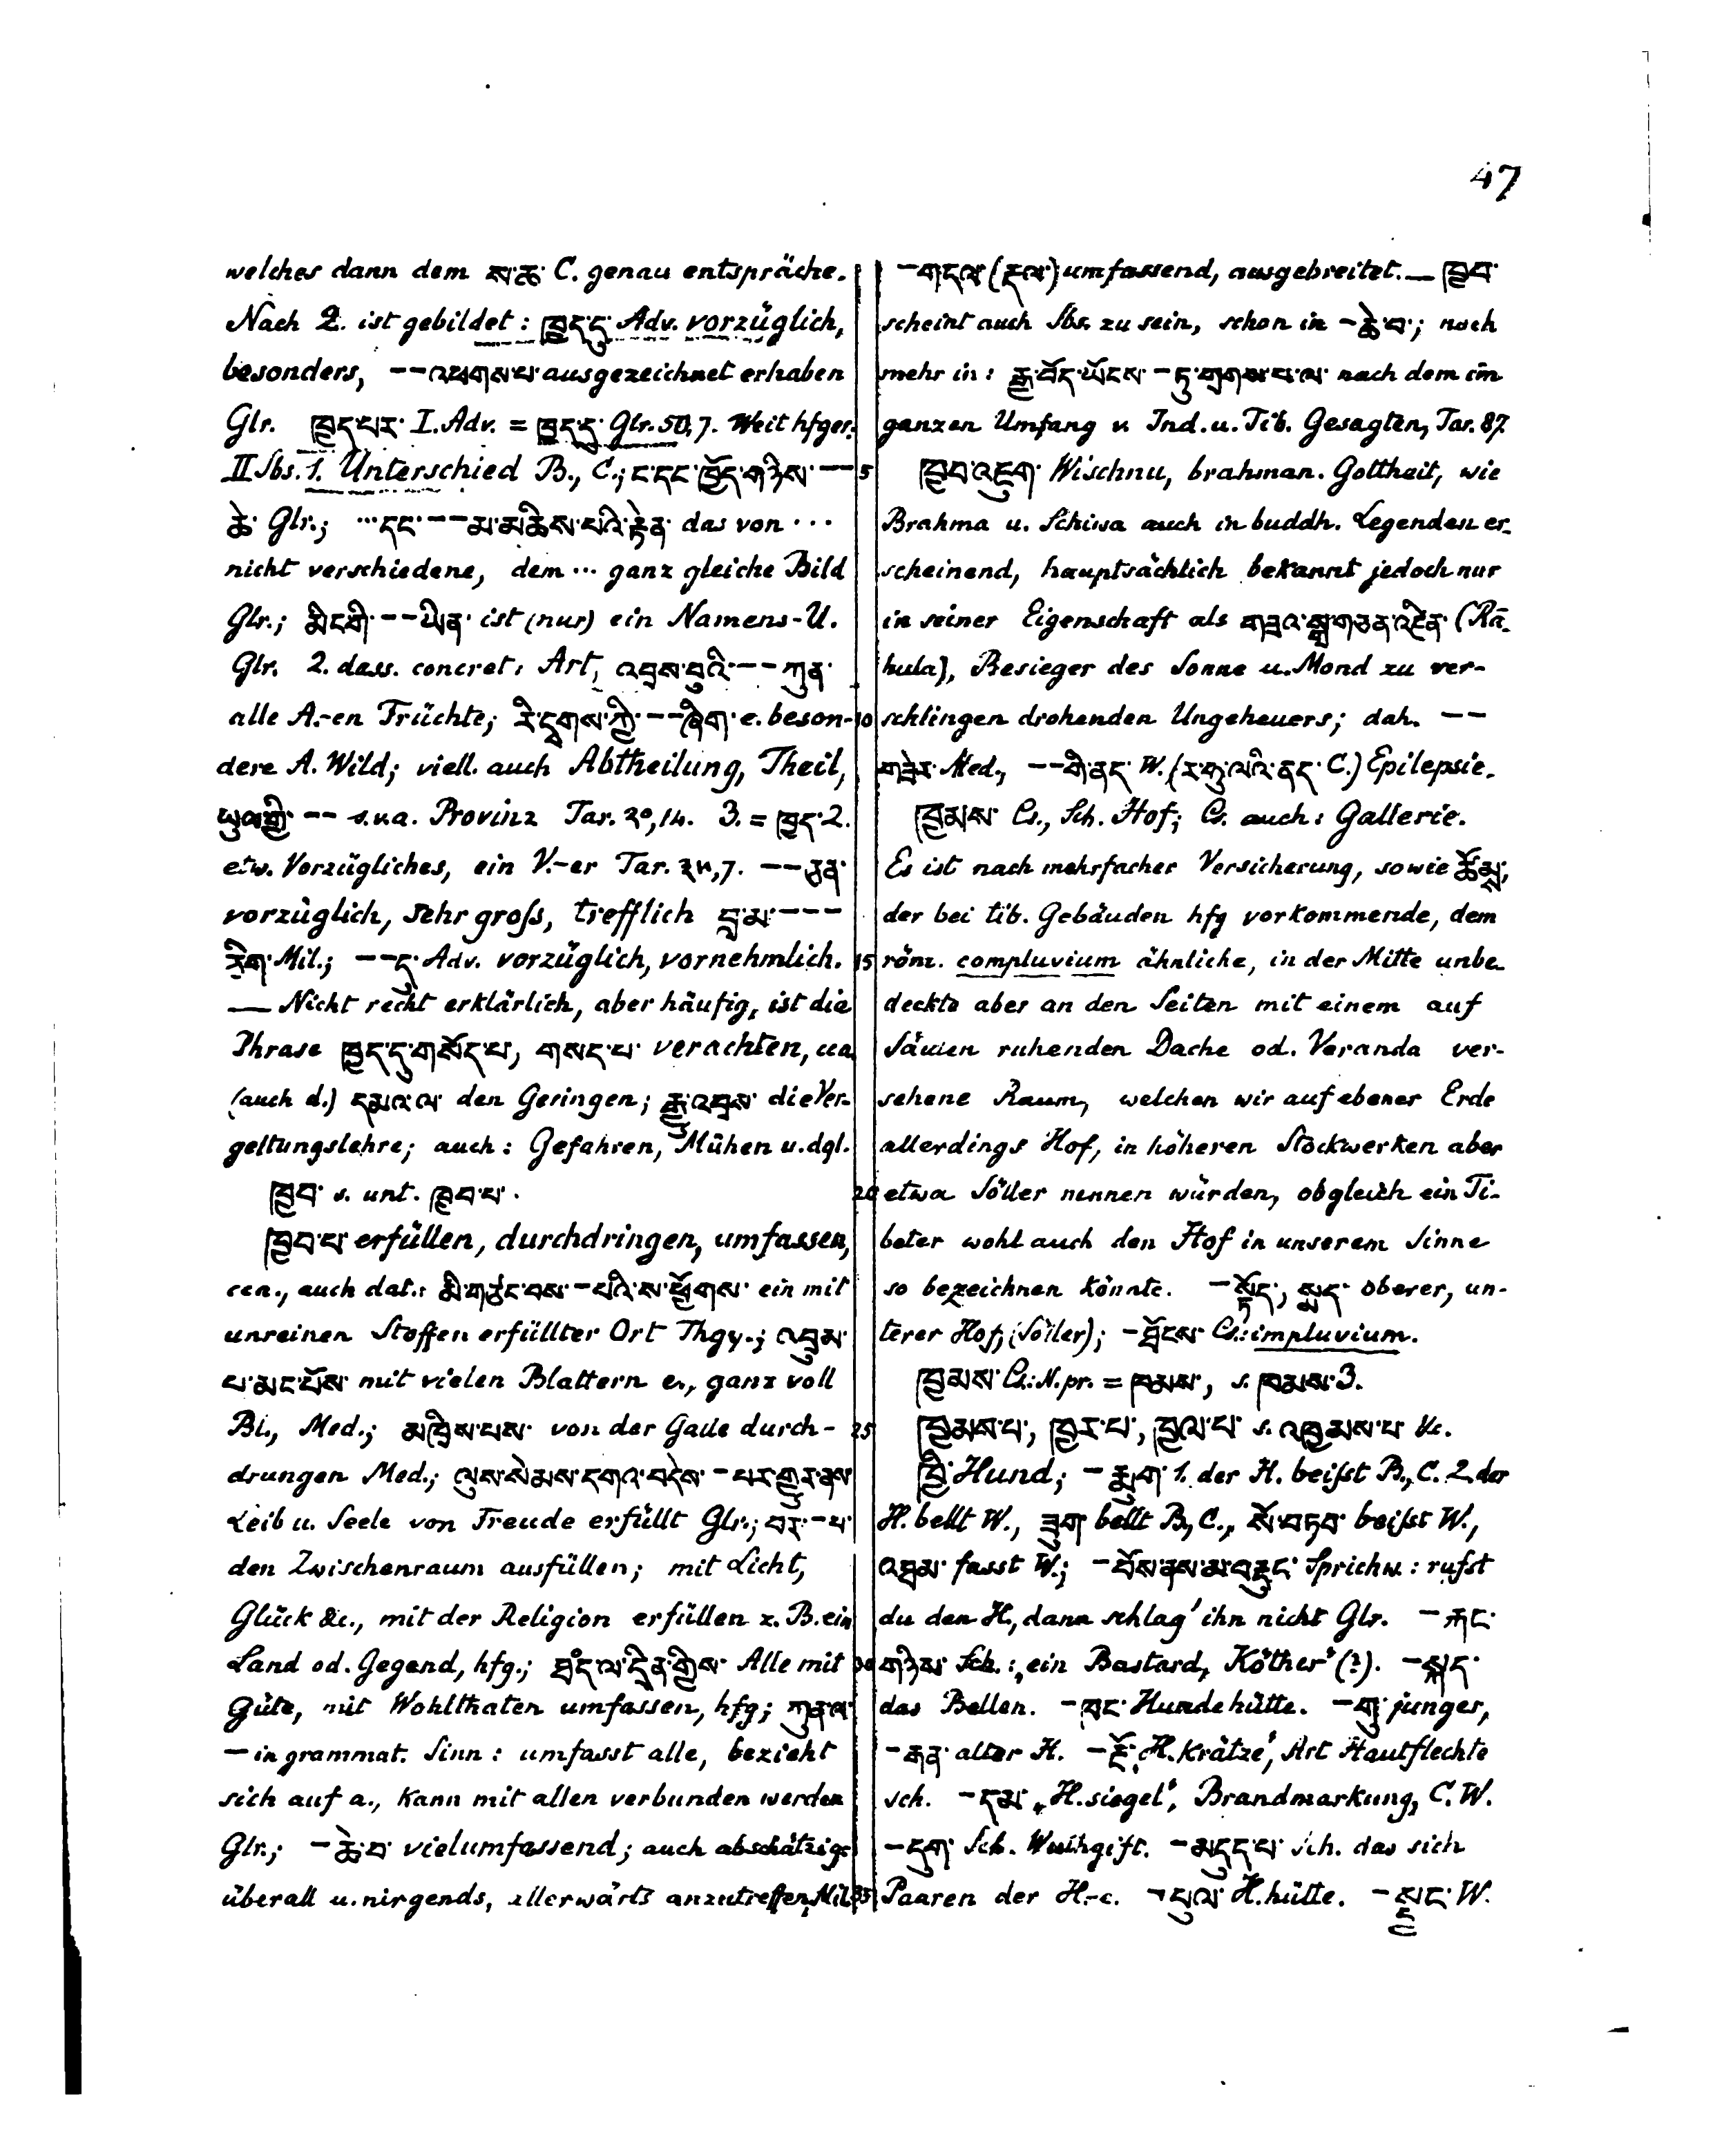 47
welches dann dem ས་ཆ་ C. genau entspräche.
Nach 2. ist gebildet: ཁྱད་དུ་ Adv. vorzüglich,
besonders, –– འཕགས་པ་ ausgezeichnet erhaben
Glr. ཁྱད་པར་ I. Adv. = ཁྱད་དུ་ Glr. 50, 7. Weit hfger.
II Sbs. 1. Unterschied B., C.; ང་དང་ཁྱོད་གཉིས་ ––
ཆེ་ Glr.; ···དང་ –– མ་མཆིས་པའི་རྟེན་ das von ···
nicht verschiedene, dem ··· ganz gleiche Bild
Glr.; མིང་གི་ –– ཡིན་ ist (nur) ein Namens-U.
Glr. 2. dass. concret: Art, འབྲས་བུའི་ –– ཀུན་
alle A.-en Früchte; རི་དྭགས་ཀྱི་ –– ཞིག་ e. beson-
dere A. Wild; viell. auch Abtheilung, Theil,
ཡུལ་གྱི་ –– s.v.a. Provinz Tar. 20,14. 3. = ཁྱད་ 2.
etw. Vorzügliches, ein V.-er Tar. ༢༥,7. –– ཅན་
vorzüglich, sehr groſs, trefflich བླ་མ་ –––
རིག་ Mil.; –– དུ་ Adv. vorzüglich, vornehmlich.
— Nicht recht erklärlich, aber häufig, ist die
Phrase ཁྱད་དུ་གསོད་པ་, གསད་པ་ verachten, ua
(auch d.) དམའ་ལ་ den Geringen; རྒྱུ་འབྲས་ die Ver-
geltungslehre; auch: Gefahren, Mühen u. dgl.
ཁྱབ་ s. unt. ཁྱབ་པ་.
ཁྱབ་པ་ erfüllen, durchdringen, umfassen,
ccn., auch dat.: མི་གཙང་བས་ – པའི་ས་ཕྱོགས་ ein mit
unreinen Stoffen erfüllter Ort Thgy.; འབྲུམ་
པ་མང་པོས་ mit vielen Blattern e., ganz voll
Bl., Med.; མཁྲིས་པས་ von der Galle durch-
drungen Med.; ལུས་སེམས་དགའ་བདེས་ – པར་གྱུར་ནས་
Leib u. Seele von Freude erfüllt Glr.; བར་ – པ་
den Zwischenraum ausfüllen; mit Licht,
Glück &c., mit der Religion erfüllen z. B. ein
Land od. Gegend, hfg.; ཐམད་ལ་དྲིན་གྱིས་ Alle mit
Güte, mit Wohlthaten umfassen, hfg; ཀུན་ལ་
– in grammat. Sinn: umfasst alle, bezieht
sich auf a., kann mit allen verbunden werden
Glr.; – ཆེ་བ་ vielumfassend; auch abschätzig:
überall u. nirgends, allerwärts anzutreffen, Mil.
– གདལ་ (རྡལ་) umfassend, ausgebreitet. — ཁྱབ་
scheint auch Sbs. zu sein, schon in – ཆེ་བ་; noch
mehr in: རྒྱ་བོད་ཡོངས་ – ཏུ་གྲགས་པ་ལ་ nach dem im
ganzen Umfang v. Ind. u. Tib. Gesagten, Tar. 87.
5 ཁྱབ་འཇུག་ Wischnu, brahman. Gottheit, wie
Brahma u. Schiwa auch in buddh. Legenden er-
scheinend, hauptsächlich bekannt jedoch nur
in seiner Eigenschaft als གཟའ་སྒྲ་གཅན་འཛིན་ (Rā-
hula), Besieger des Sonne u. Mond zu ver-
10 schlingen drohenden Ungeheuers; dah. ––
གཟེར་ Med., –– གི་ནད་ W. (ར་ཧུ་ལའི་ནད་ C.) Epilepsie.
ཁྱམས་ Cs., Sch. Hof; Cs. auch: Gallerie.
Es ist nach mehrfacher Versicherung, sowie
der bei tib. Gebäuden hfg vorkommende, dem
15 röm. compluvium ähnliche, in der Mitte unbe-
deckte aber an den Seiten mit einem auf
Säulen ruhenden Dache od. Veranda ver-
sehene Raum, welchen wir auf ebener Erde
allerdings Hof, in höheren Stockwerken aber
20 etwa Söller nennen würden, obgleich ein Ti-
beter wohl auch den Hof in unserem Sinne
so bezeichnen könnte. – སྟོད་, སྨད་ oberer, un-
terer Hof, (Söller); – ཐོངས་ Cs.: impluvium.
ཁྱམས་ Cs.: N.pr. = ཁམས་, s. ཁམས་ 3.
25 ཁྱམས་པ་, ཁྱར་པ་, ཁྱལ་པ་ s. འཁྱམས་པ་ &c.
ཁྱི་ Hund; – རྨུག་ 1. der H. beiſst B., C. 2. der
H. bellt W., ཟུག་ bellt B., C., སོ་བཏབ་ beiſst W.,
འཐམ་ fasst W.; – བོས་ནས་མ་བརྡུང་ Sprichw.: rufst
du den H., dann schlag' ihn nicht Glr. – རྐང་
30 གཉིས་ Sch.: „ein Bastard, Köther“ (?). – སྐད་
das Bellen. – ཁང་ Hundehütte. – གུ་ junger,
– རྒན་ alter H. – རྔོ་ „H. krätze“, Art Hautflechte
sch. – དམ་ „H. siegel“, Brandmarkung, C. W.
– དུག་ Sch. Wuthgift. – མདུད་པ་ Sch. das sich
35 Paaren der H.-e. – པུལ་ H.hütte. – སྤྱང་ W.